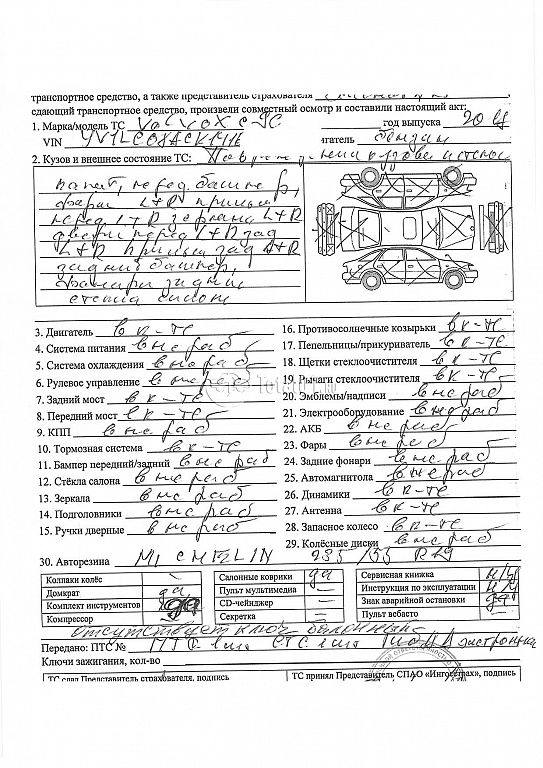 транспортное средство, а также представитель страхователя
сдающий транспортное средство, произвели совместный осмотр и составили настоящий акт:
1. Марка/модель ТС VOLVO XC 90 год выпуска 20
VIN двигатель бензин
2. Кузов и внешнее состояние ТС: Повреждения кузова
капот, перед. бампер,
фары L+R крылья
перед L+R зеркала L+R
двери перед L+R зад
L+R крылья зад L+R
задний бампер,
фонари задние
стекла салона
3. Двигатель в к-те
4. Система питания в не раб
5. Система охлаждения в не раб
6. Рулевое управление в не раб
7. Задний мост в к-те
8. Передний мост в к-те
9. КПП в не раб
10. Тормозная система в к-те
11. Бампер передний/задний в не раб
12. Стёкла салона в не раб
13. Зеркала в не раб
14. Подголовники в не раб
15. Ручки дверные в не раб
16. Противосолнечные козырьки в к-те
17. Пепельницы/прикуриватель в к-те
18. Щетки стеклоочистителя в к-те
19. Рычаги стеклоочистителя в к-те
20. Эмблемы/надписи в не раб
21. Электрооборудование в не раб
22. АКБ в не раб
23. Фары в не раб
24. Задние фонари в не раб
25. Автомагнитола в не раб
26. Динамики в к-те
27. Антенна в к-те
28. Запасное колесо в к-те
29. Колёсные диски в не раб
30. Авторезина MICHELIN 235/55 R19
Колпаки колёс – Салонные коврики да Сервисная книжка
Домкрат да Пульт мультимедиа – Инструкция по эксплуатации
Комплект инструментов да CD-чейнджер – Знак аварийной остановки да
Компрессор – Секретка – Пульт вебасто –
отсутствует ключ балонный
Передано: ПТС № ПТС СТС электронка
Ключи зажигания, кол-во
ТС сдал Представитель страхователя, подпись ТС принял Представитель СПАО «Ингосстрах», подпись